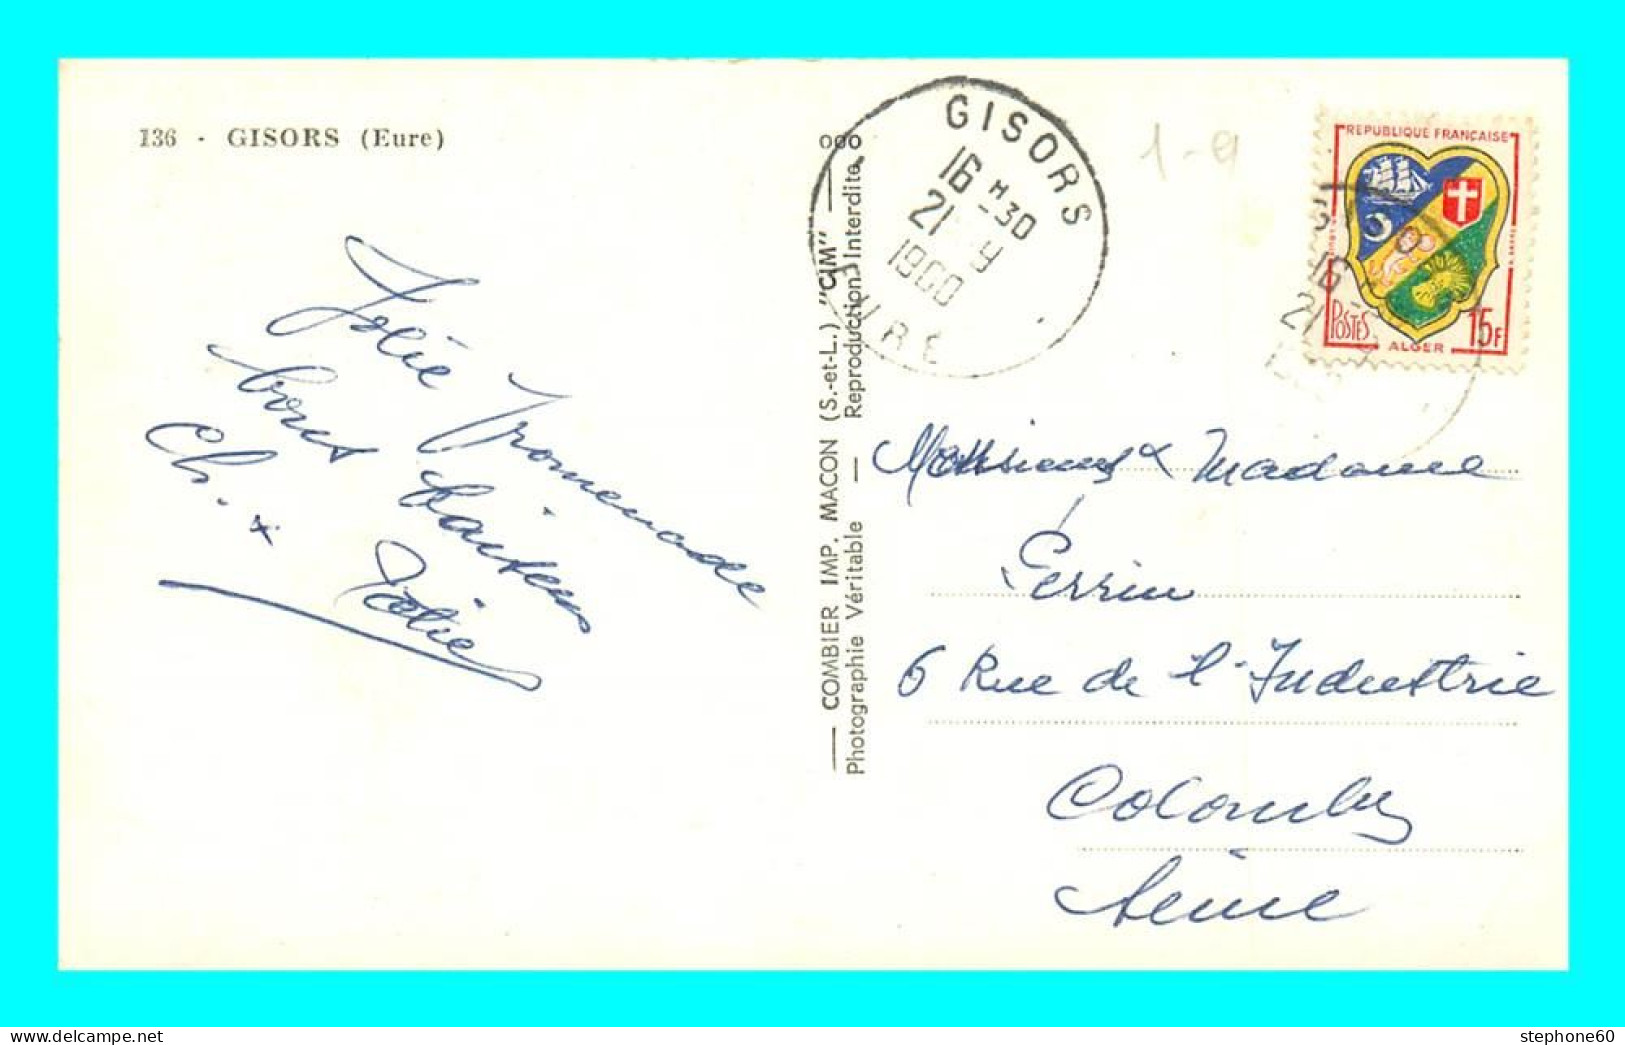 136 - GISORS (Eure)
Jolie promenade
bons baisers
Ch. &
COMBIER IMP. MACON (S.-et-L.) "CIM"
Photographie Véritable — Reproduction Interdite
GISORS
16 H 30
21 9
1960
EURE
1-9
REPUBLIQUE FRANÇAISE
POSTES
15F
ALGER
16
21
Monsieur & Madame
Perrin
6 Rue de l'Industrie
Colombes
Seine
delcampe.net
stephone60